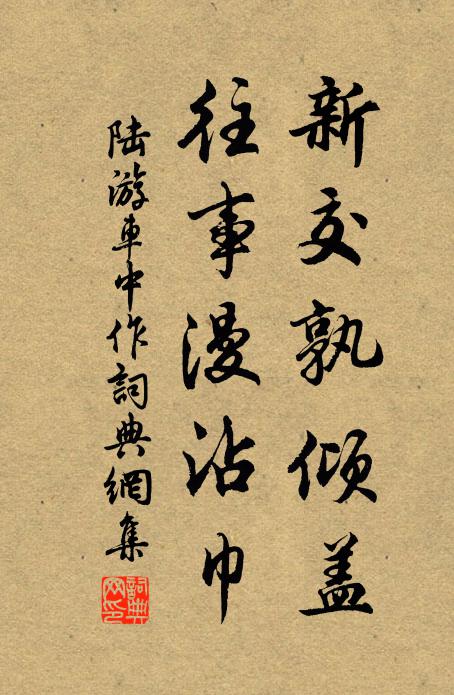 新交孰倾盖
往事漫沾巾
陆游车中作词典網集
詞典网印